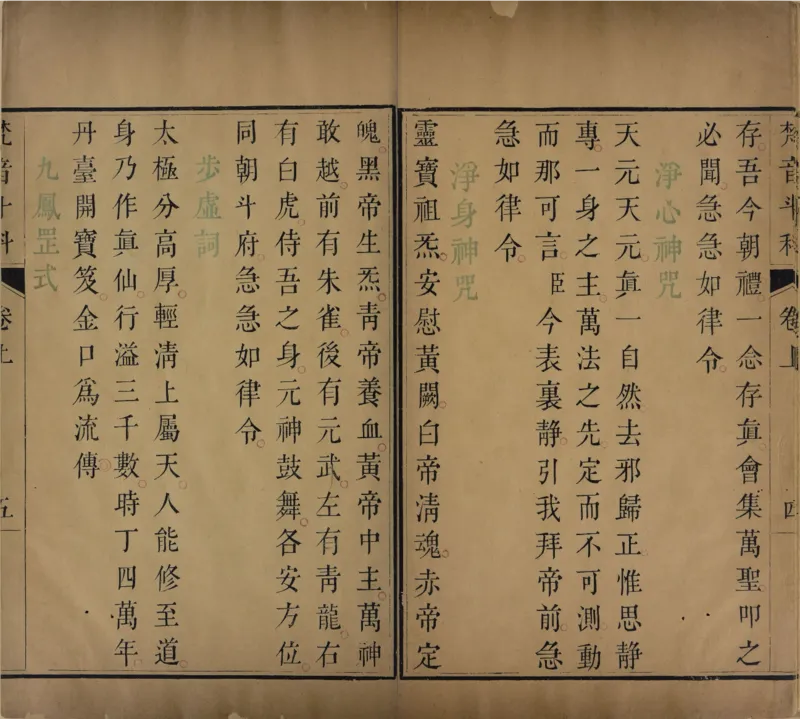 梵音斗科 卷上 四
存。吾今朝禮。一念存眞。會集萬聖。叩之
必聞。急急如律令。
淨心神咒
天元天元。眞一自然。去邪歸正。惟思靜
專。一身之主。萬法之先。定而不可測。動
而那可言。臣今表裏靜。引我拜帝前。急
急如律令。
淨身神咒
靈寶祖炁。安慰黃闕。白帝淸魂。赤帝定
魄。黑帝生炁。靑帝養血。黃帝中主。萬神
敢越。前有朱雀。後有元武。左有靑龍。右
有白虎。侍吾之身。元神鼓舞。各安方位。
同朝斗府。急急如律令。
步虛詞
太極分高厚。輕淸上屬天。人能修至道。
身乃作眞仙。行溢三千數。時丁四萬年。
丹臺開寶笈。金口爲流傳。
九鳳罡式
梵音斗科 卷上 五